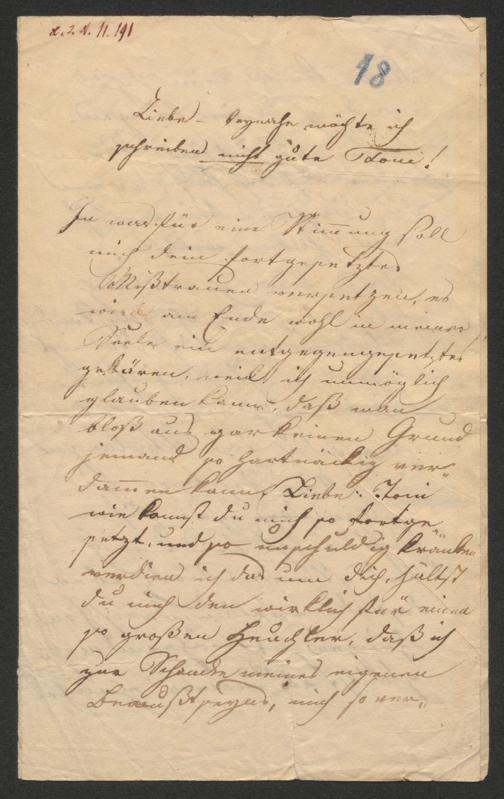 I. N. 11.191
48
Liebe – beynahe möchte ich
schreiben nicht gute Toni!
In was für eine Stimmung soll
mich dein fortgesetztes
Mißtrauen versetzen, es
wird am Ende wohl in meiner
Seele ein entgegengesetztes
gebären, weil ich unmöglich
glauben kann, daß man
bloß aus gar keinen Grund
jemand so hartnäckig ver
dammen kann, Liebe Toni
wie kannst du mich so fortge
setzt, und so unschuldig kränken
verdien ich das um dich, hältst
du mich den wirklich für einen
so großen Heuchler, daß ich
zur Schande meines eigenen
Bewußtseyns, mich so ver,